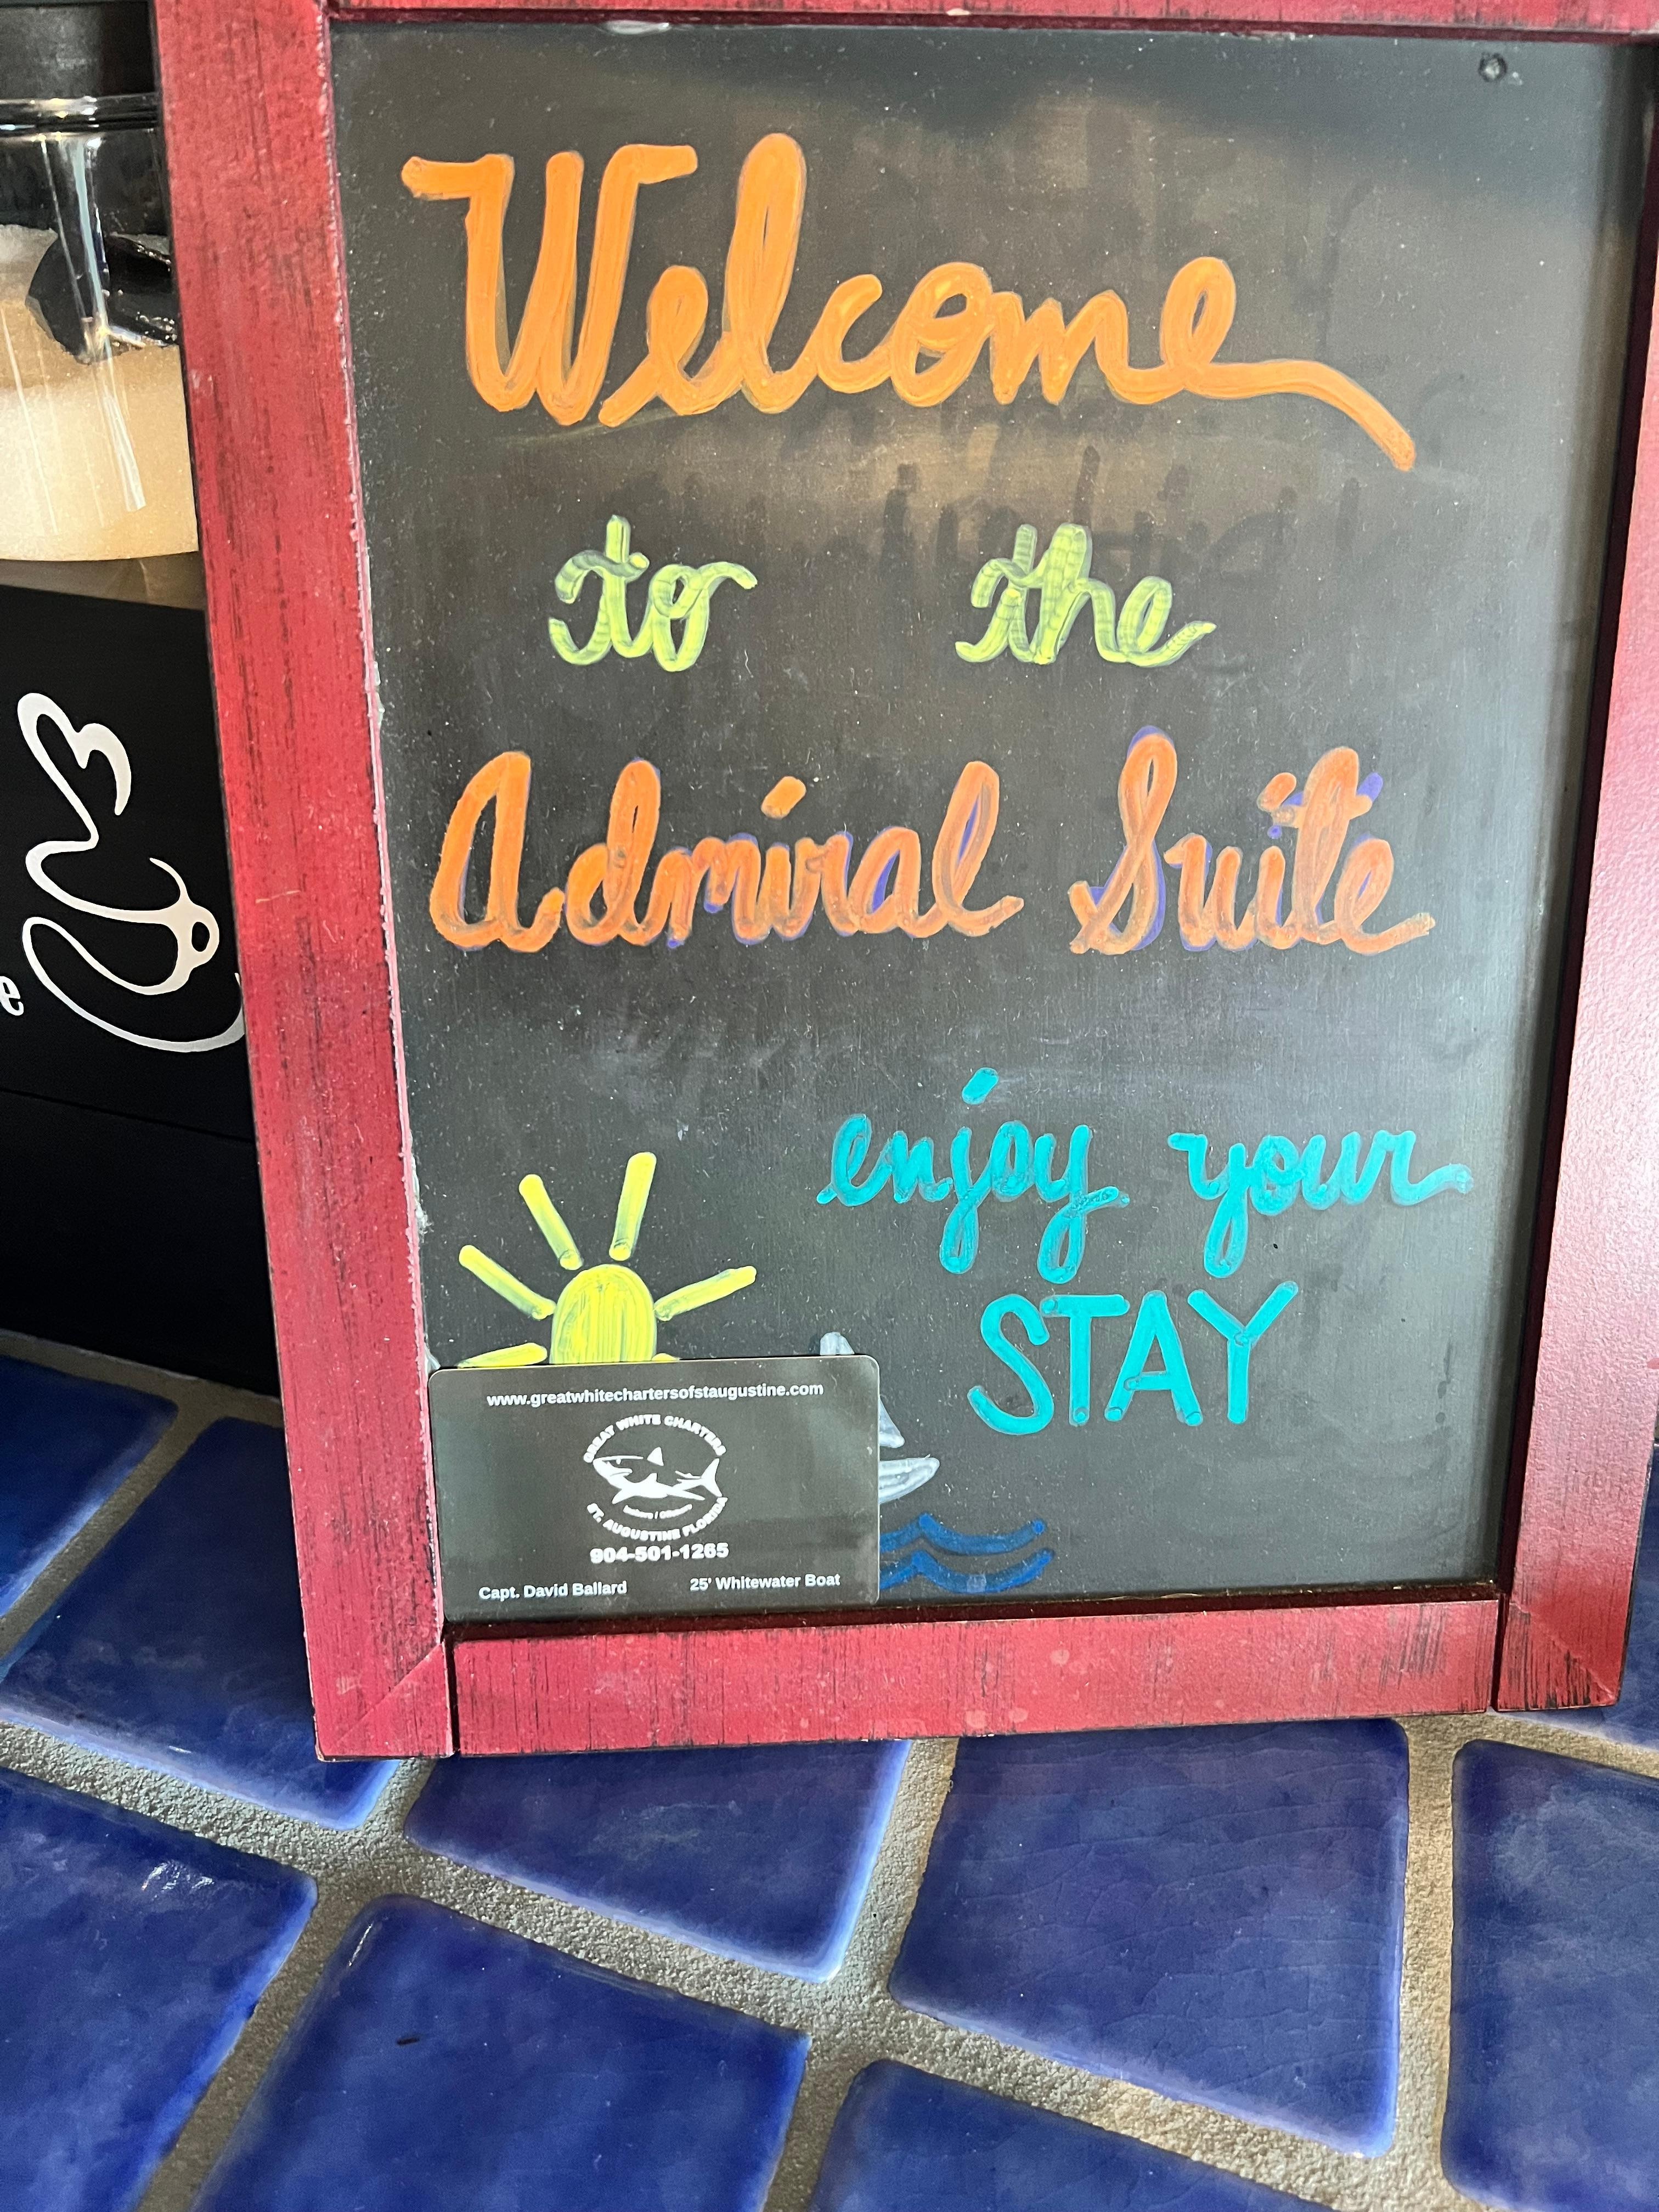 Welcome
to the
Admiral Suite
enjoy your
STAY
www.greatwhitechartersofstaugustine.com
GREAT WHITE CHARTERS
ST. AUGUSTINE FLORIDA
904-501-1265
Capt. David Ballard 25' Whitewater Boat
e